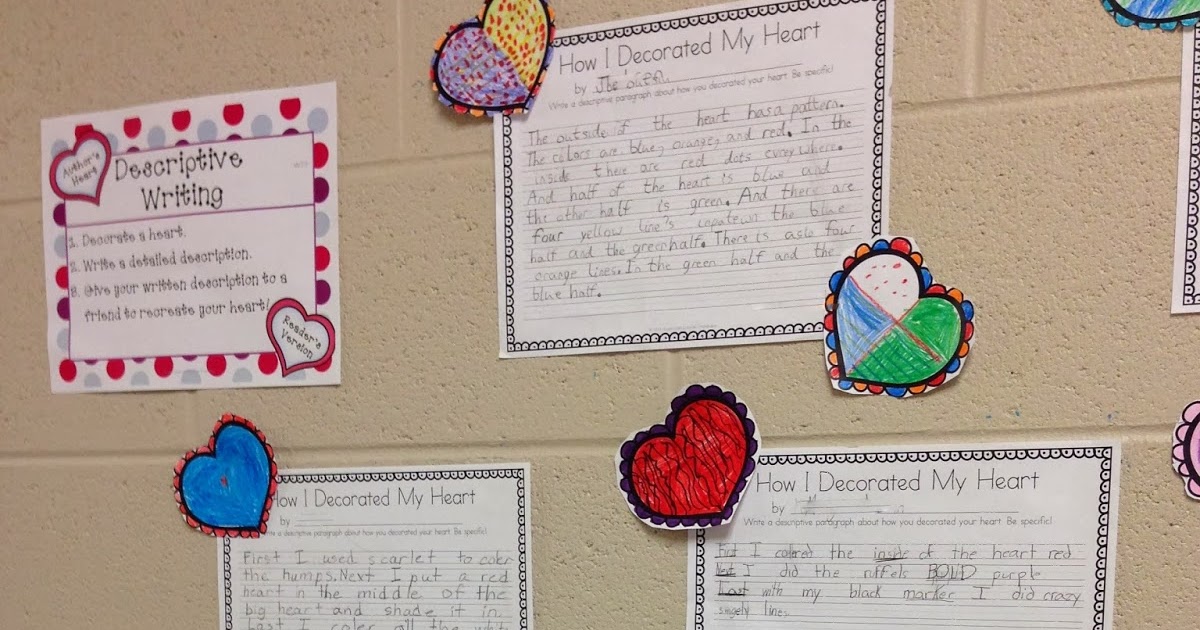 Author's
Heart
Descriptive
Writing
1. Decorate a heart.
2. Write a detailed description.
3. Give your written description to a
friend to recreate your heart!
Reader's
Version
How I Decorated My Heart
by
Write a descriptive paragraph about how you decorated your heart. Be specific!
The outside of the heart has a pattern.
The colors are blue, orange, and red. In the
inside there are red dots evreywhere.
And half of the heart is blue and
the other half is green. And there are
four yellow line's the blue
half and the green half. There is aslo four
orange lines. In the green half and the
blue half.
How I Decorated My Heart
by
Write a descriptive paragraph about how you decorated your heart. Be specific!
First I used scarlet to coler
the humps. Next I put a red
heart in the middle of the
big heart and shade it in.
Last I coler all the
How I Decorated My Heart
by
Write a descriptive paragraph about how you decorated your heart. Be specific!
First I colored the inside of the heart red
Next I did the ruffels BOLD purple
Last with my black marker I did crazy
lines.